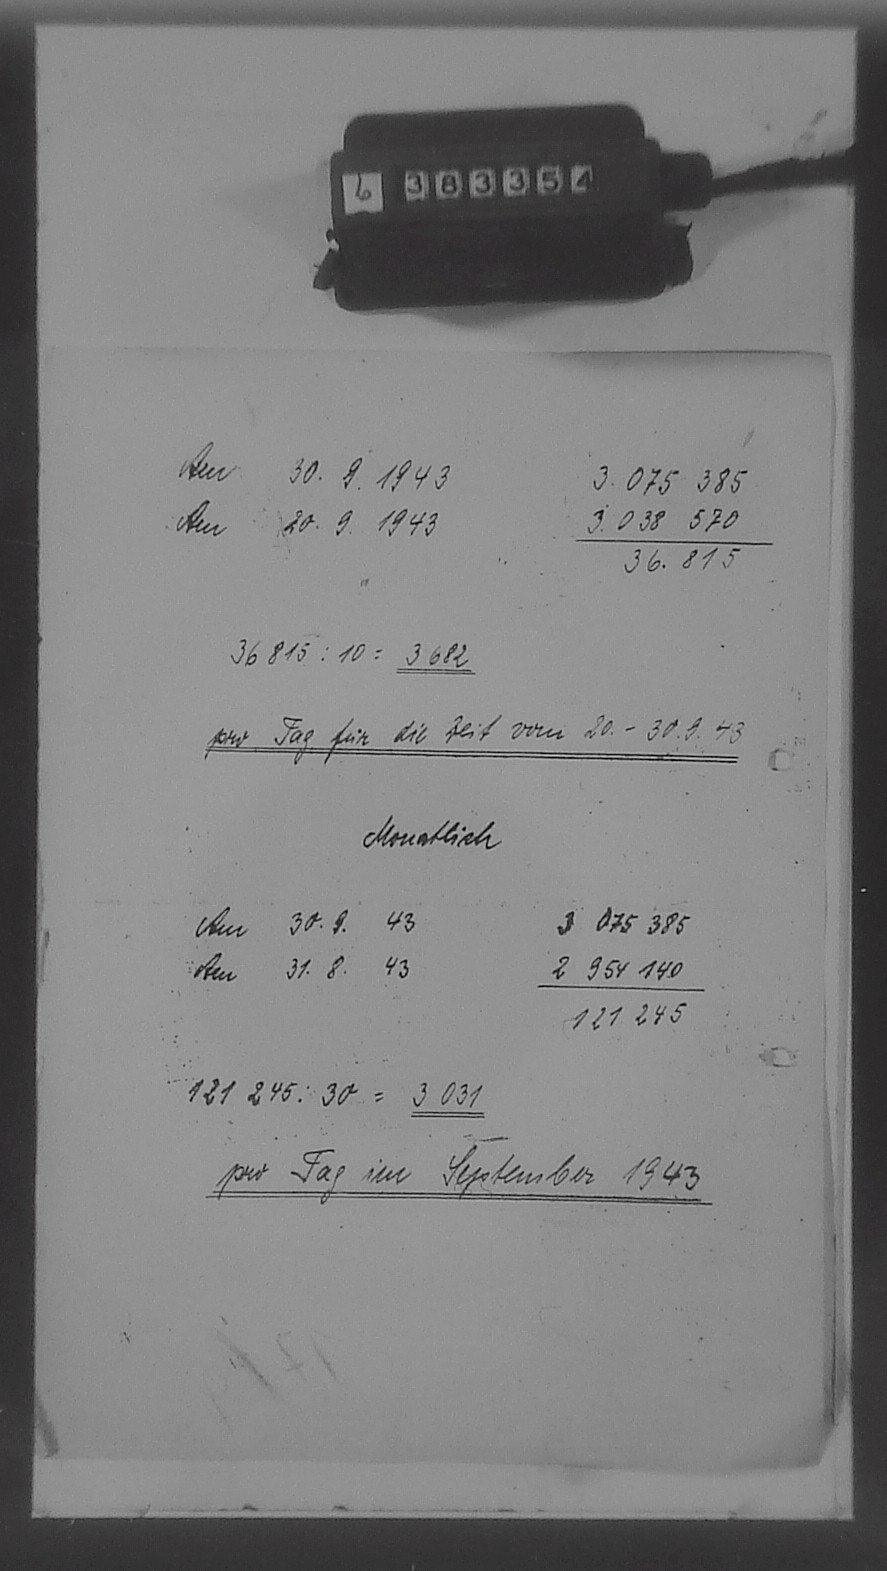 6 383354
Am 30. 9. 1943 3. 075 385
Am 20. 9. 1943 3. 038 570
36. 815
36 815 : 10 = 3 682
pro Tag für die Zeit vom 20. - 30. 9. 43
Monatlich
Am 30. 9. 43 3 075 385
Am 31. 8. 43 2 954 140
121 245
121 245 : 30 = 3 031
pro Tag im September 1943